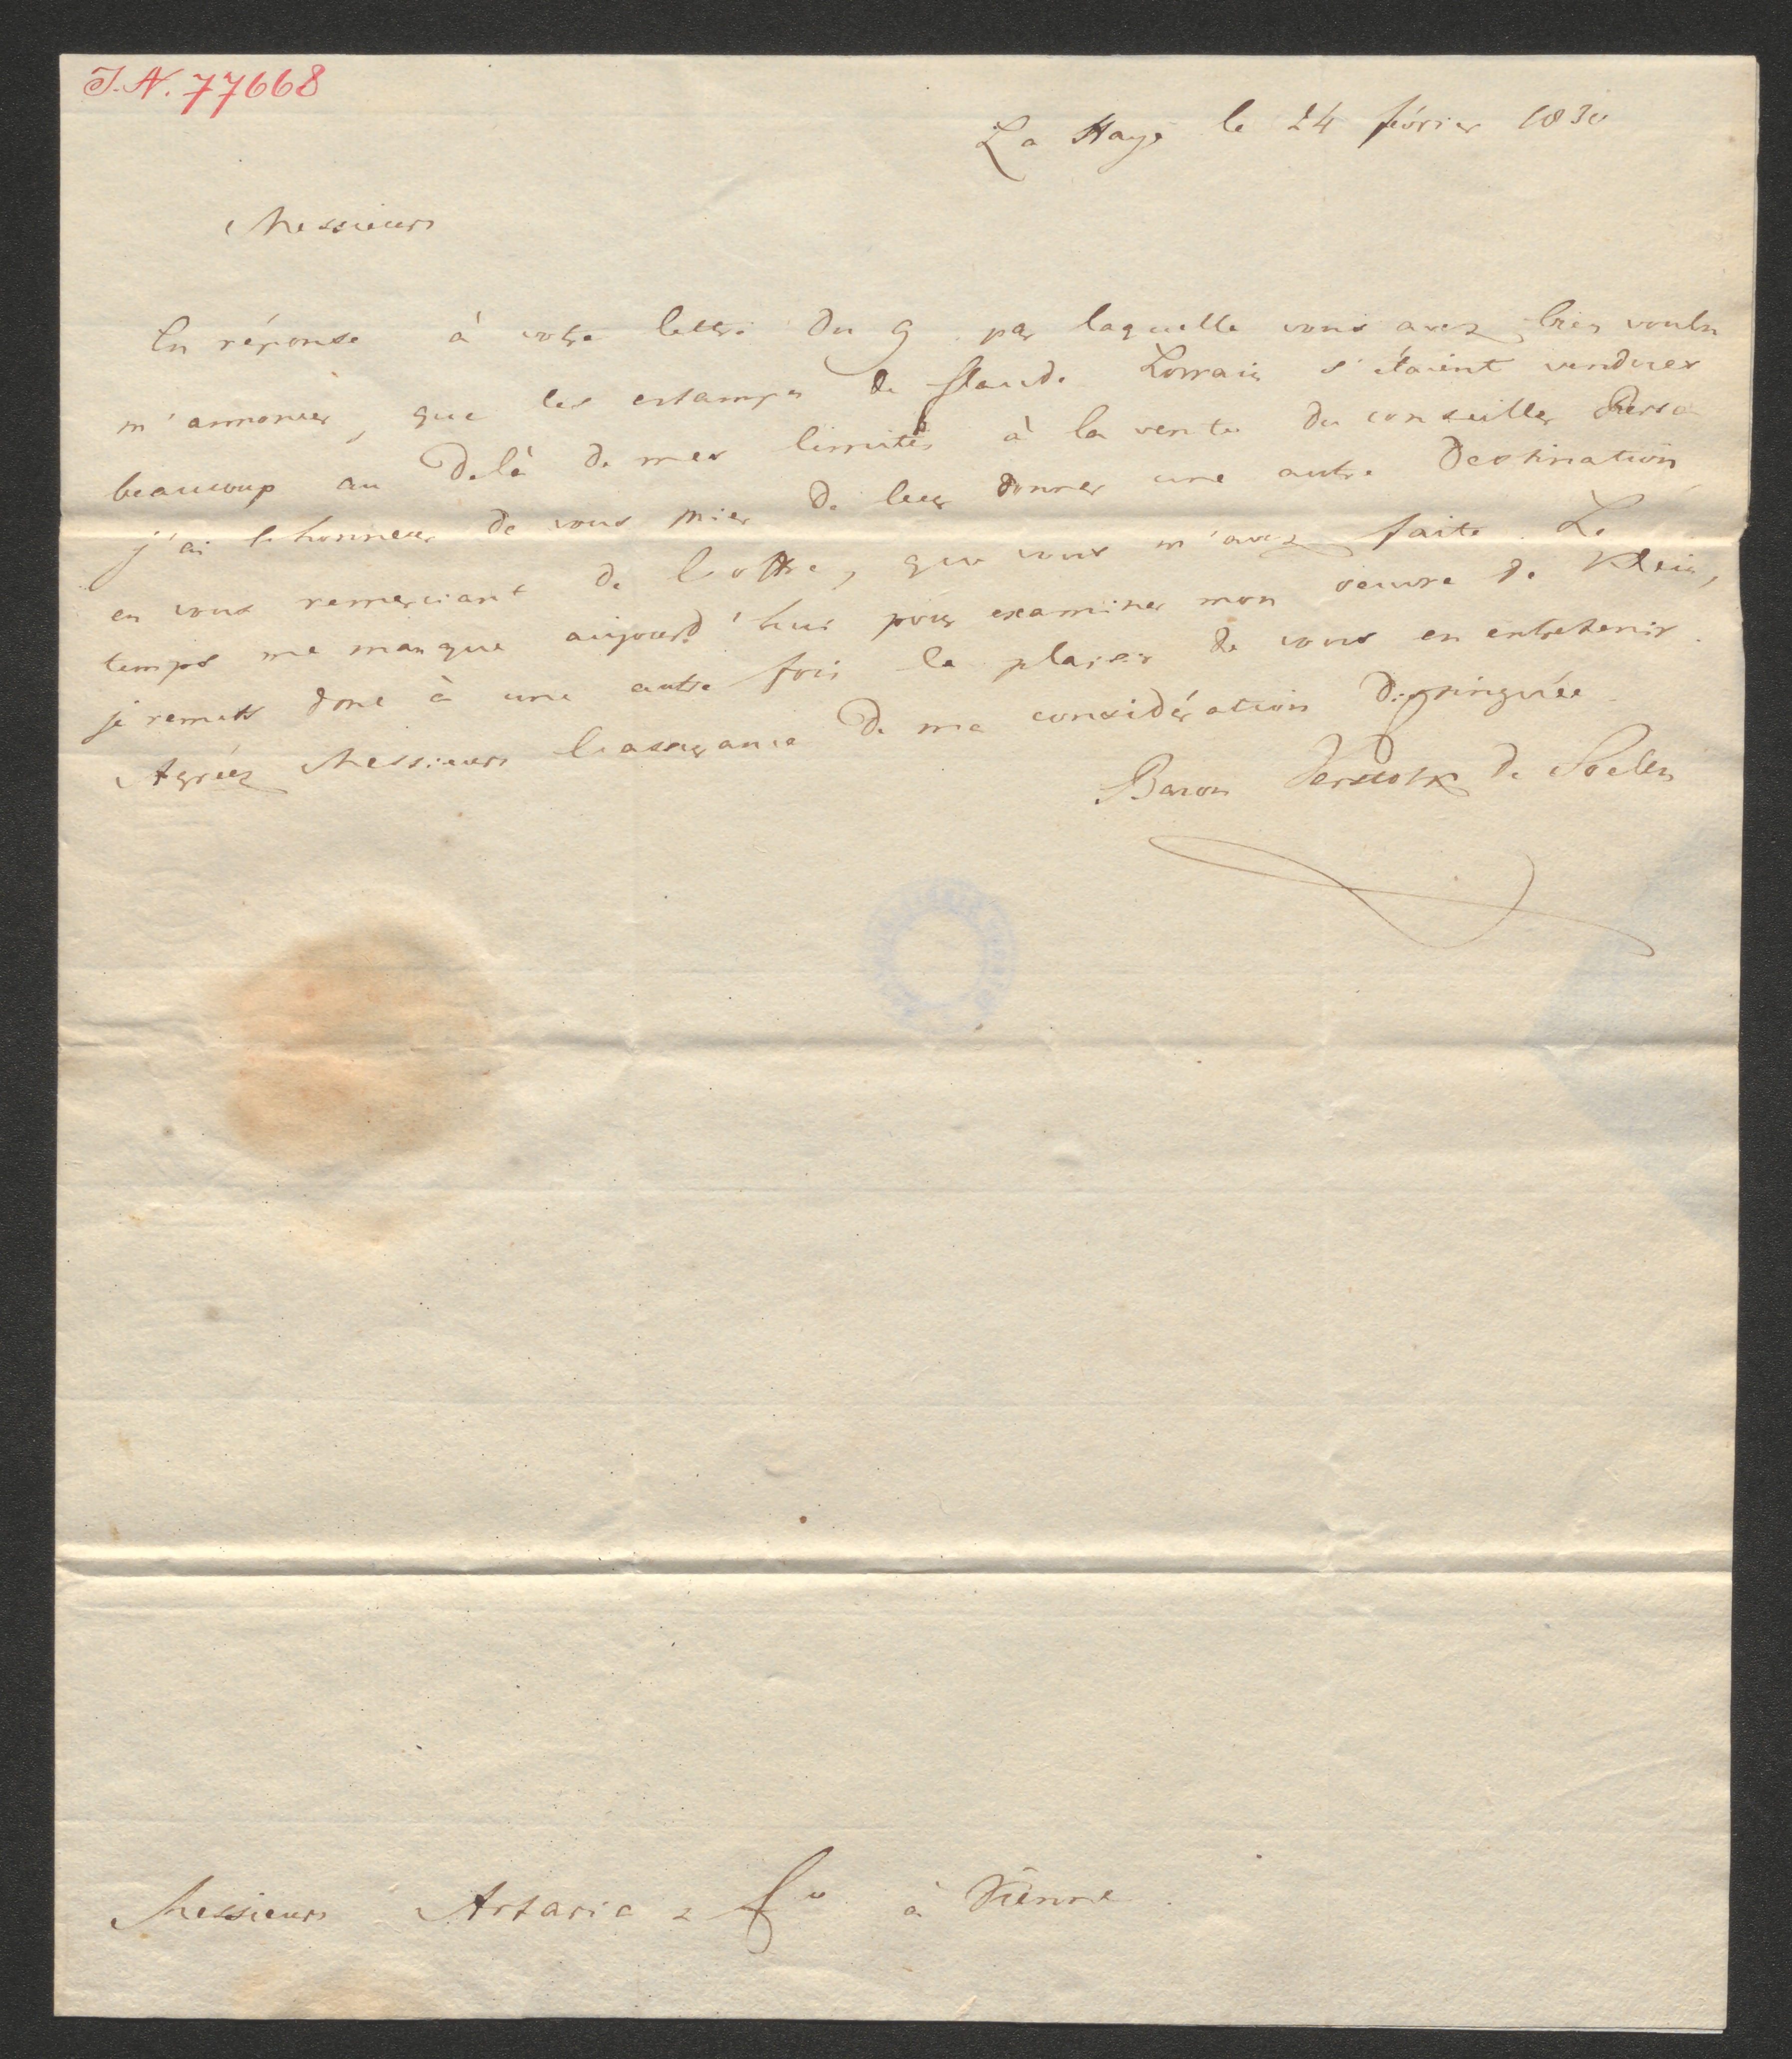 I.N. 77668
La Haye le 24 févrior 1830
Messieurs
En réponse à votre lettre du 9 par laquelle vous avez bien voulu
m'annoncer, que les estampes de Claude Lorrain s'étaient vendues
beaucoup au delà de mes limites à la vente du conseiller
j'ai l'honneur de vous prier de leur donner une autre destination,
en vous remerciant de l'offre, que vous m'avez faite. Le
temps me manque aujourd'hui pour examiner mon oeuvre de Klein,
je remets donc à une autre fois le plaisir de vous en entretenir.
Agréez Messieurs l'assurance de ma considération distinguée.
Baron Verstolk de Soelen
Messieurs Artaria & Co à Vienne.